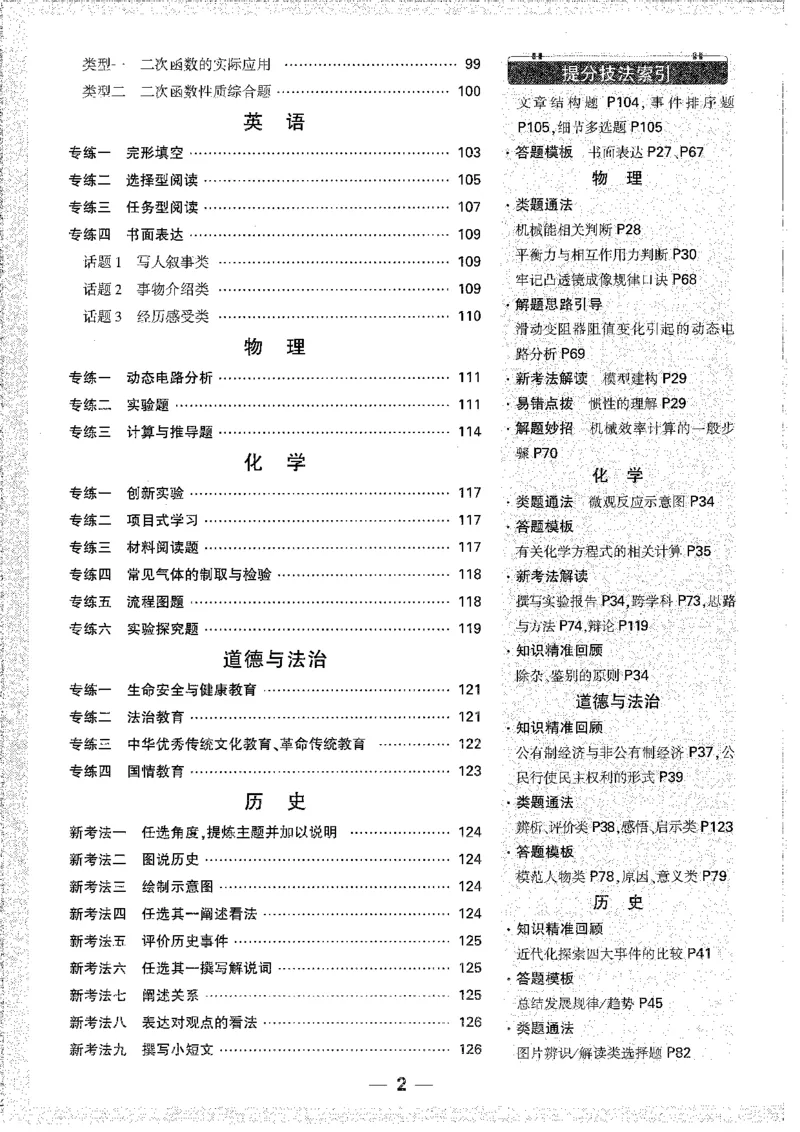 类型一 二次函数的实际应用 …………………………… 99
类型二 二次函数性质综合题 …………………………… 100
英 语
专练一 完形填空 …………………………… 103
专练二 选择型阅读 …………………………… 105
专练三 任务型阅读 …………………………… 107
专练四 书面表达 …………………………… 109
话题1 写人叙事类 …………………………… 109
话题2 事物介绍类 …………………………… 109
话题3 经历感受类 …………………………… 110
物 理
专练一 动态电路分析 …………………………… 111
专练二 实验题 …………………………… 111
专练三 计算与推导题 …………………………… 114
化 学
专练一 创新实验 …………………………… 117
专练二 项目式学习 …………………………… 117
专练三 材料阅读题 …………………………… 117
专练四 常见气体的制取与检验 …………………………… 118
专练五 流程图题 …………………………… 118
专练六 实验探究题 …………………………… 119
道德与法治
专练一 生命安全与健康教育 …………………………… 121
专练二 法治教育 …………………………… 121
专练三 中华优秀传统文化教育、革命传统教育 …………… 122
专练四 国情教育 …………………………… 123
历 史
新考法一 任选角度,提炼主题并加以说明 ………………… 124
新考法二 图说历史 …………………………… 124
新考法三 绘制示意图 …………………………… 124
新考法四 任选其一阐述看法 …………………………… 124
新考法五 评价历史事件 …………………………… 125
新考法六 任选其一撰写解说词 …………………………… 125
新考法七 阐述关系 …………………………… 125
新考法八 表达对观点的看法 …………………………… 126
新考法九 撰写小短文 …………………………… 126
提分技法索引
文章结构题 P104,事件排序题
P105,细节多选题 P105
·答题模板 书面表达 P27、P67
物 理
·类题通法
机械能相关判断 P28
平衡力与相互作用力判断 P30
牢记凸透镜成像规律口诀 P68
·解题思路引导
滑动变阻器阻值变化引起的动态电
路分析 P69
·新考法解读 模型建构 P29
·易错点拨 惯性的理解 P29
·解题妙招 机械效率计算的一般步
骤 P70
化 学
·类题通法 微观反应示意图 P34
·答题模板
有关化学方程式的相关计算 P35
·新考法解读
撰写实验报告 P34,跨学科 P73,思路
与方法 P74,辩论 P119
·知识精准回顾
除杂、鉴别的原则 P34
道德与法治
·知识精准回顾
公有制经济与非公有制经济 P37,公
民行使民主权利的形式 P39
·类题通法
辨析、评价类 P38,感悟、启示类 P123
·答题模板
模范人物类 P78,原因、意义类 P79
历 史
·知识精准回顾
近代化探索四大事件的比较 P41
·答题模板
总结发展规律/趋势 P45
·类题通法
图片辨识/解读类选择题 P82
— 2 —